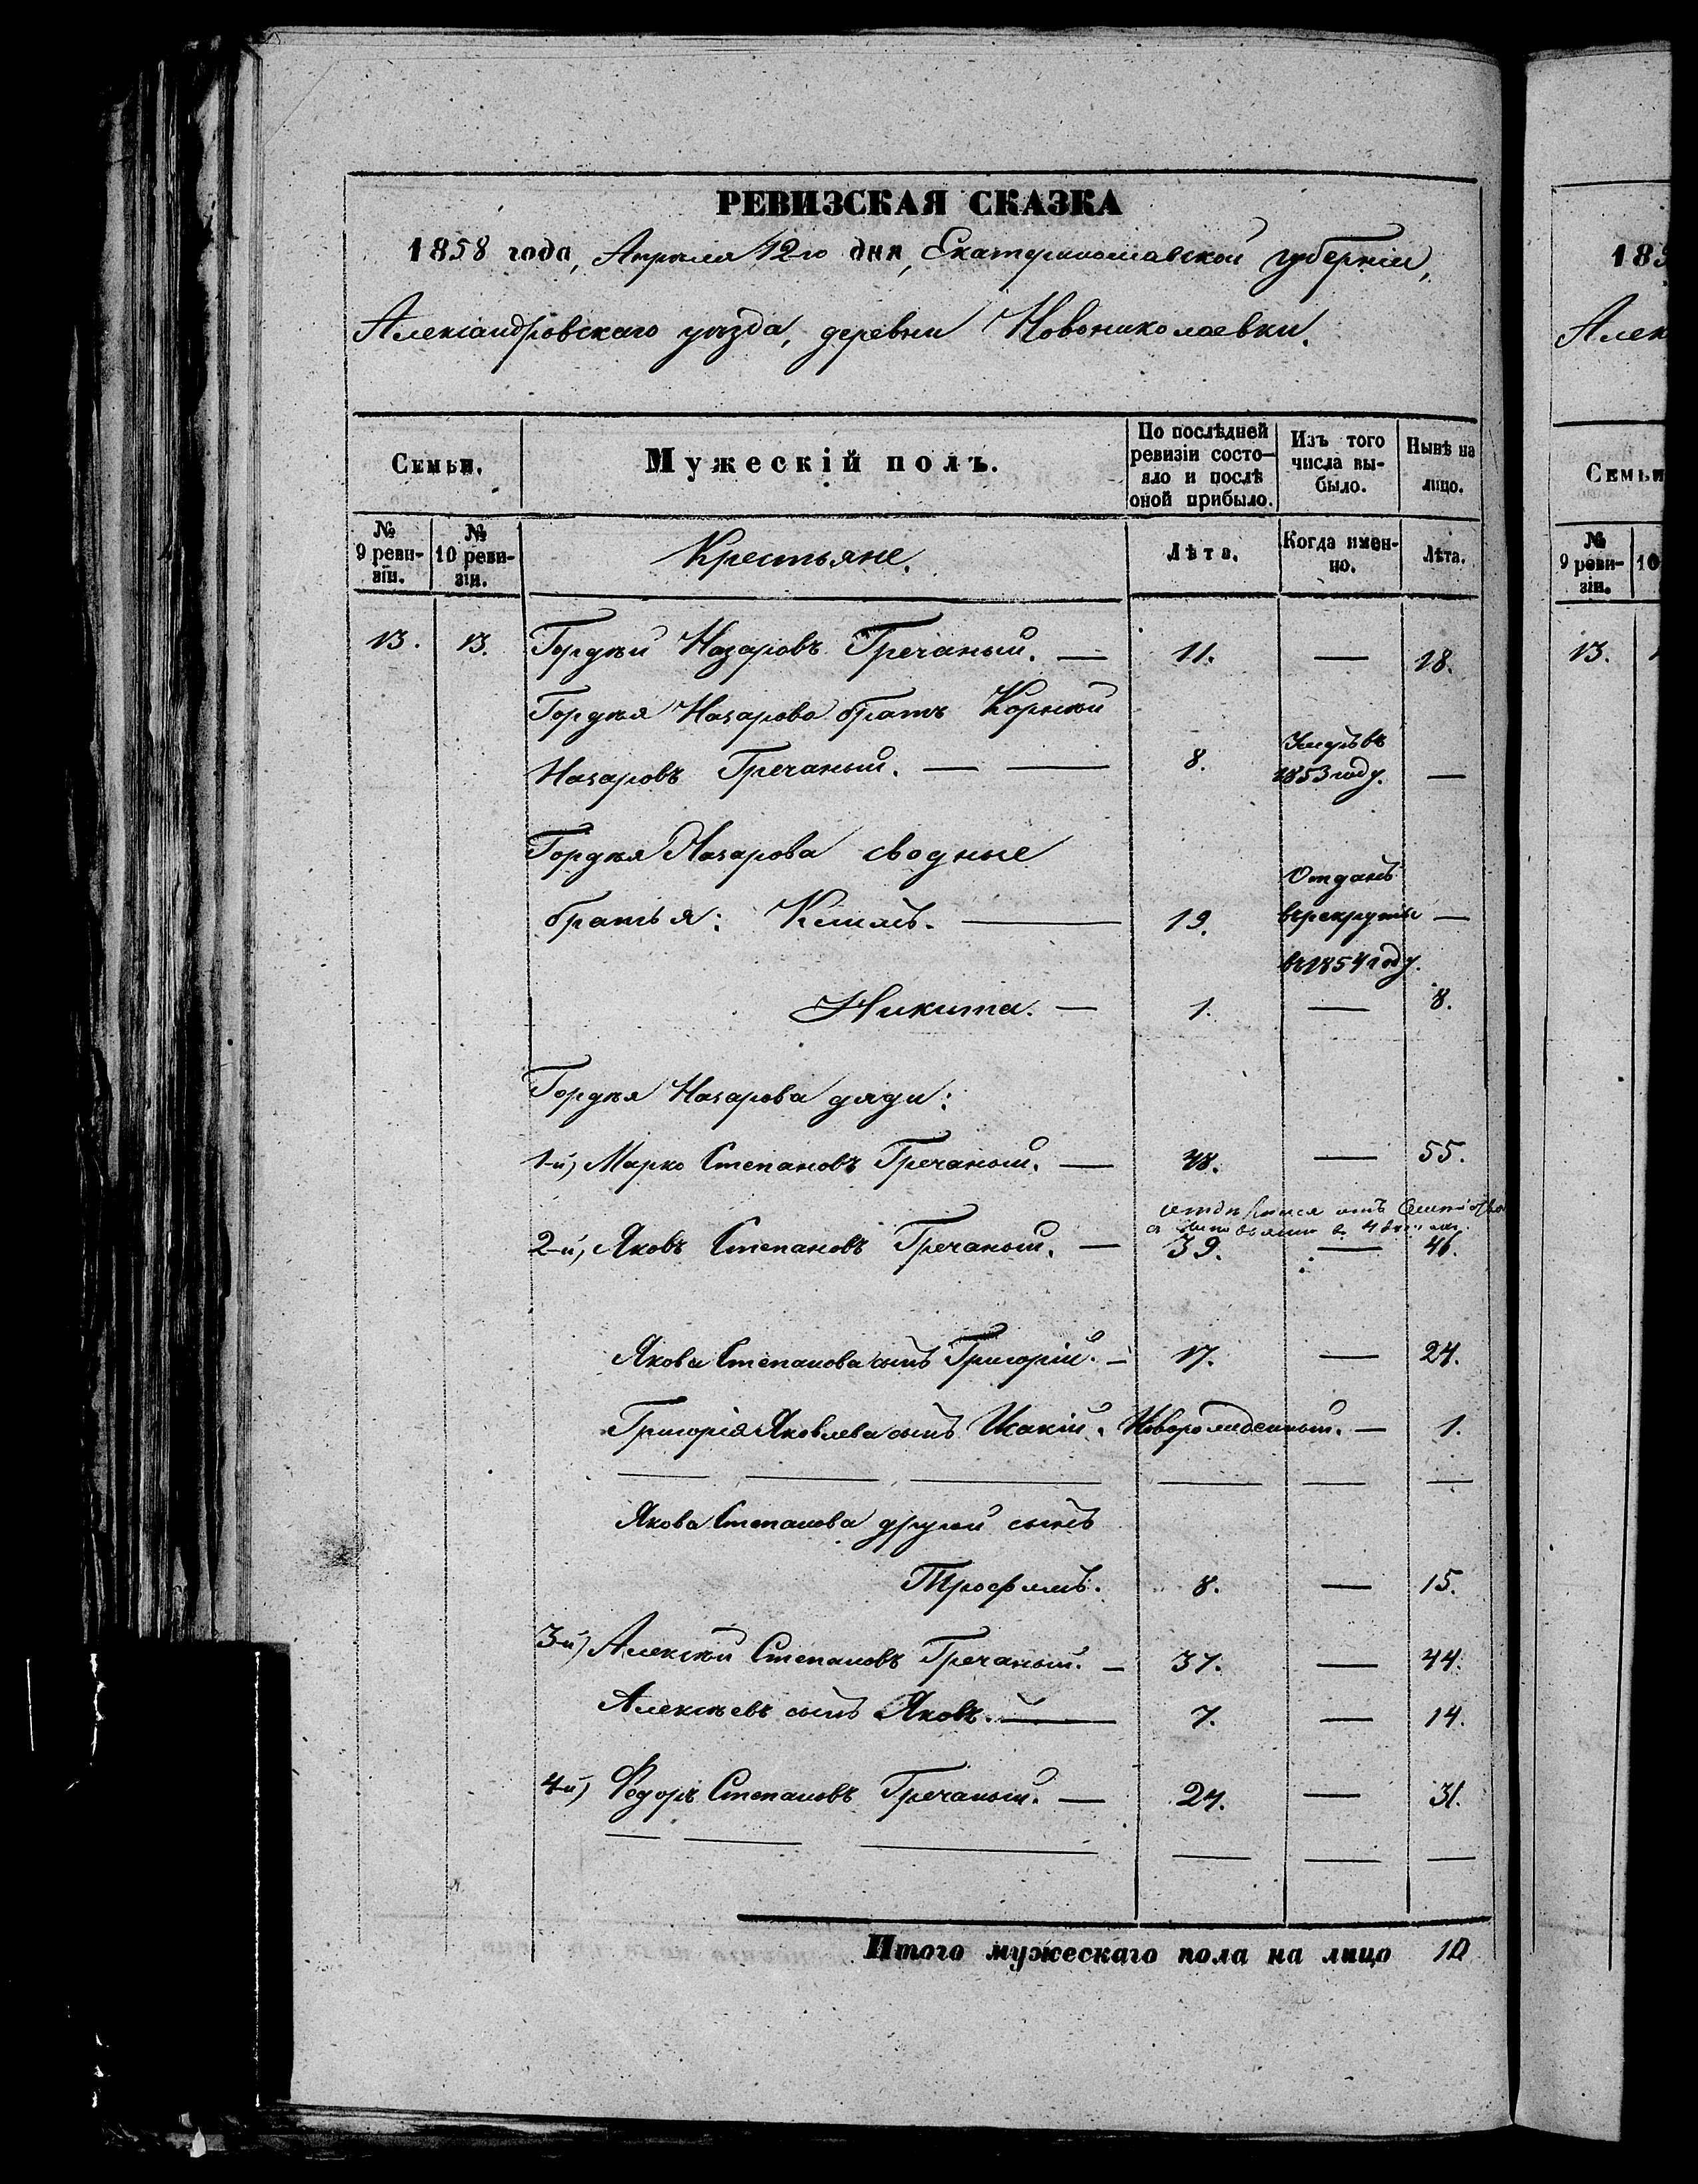 РЕВИЗСКАЯ СКАЗКА
1858 года, Апреля 12го дня, Екатеринославской губерніи,
Александровскаго уѣзда, деревни Новониколаевки.
Семьи. Мужескій полъ. По послѣдней ревизіи состояло и послѣ оной прибыло. Изъ того числа выбыло. Нынѣ на лицо.
№ 9 ревизіи. № 10 ревизіи. Крестьяне. Лѣта. Когда именно. Лѣта.
13. 13. Гордѣй Назаровъ Гречаный. — 11. — 18.
Гордѣя Назарова братъ Корнѣй
Назаровъ Гречаный. — — 8. Умеръ въ 1853 году. —
Гордѣя Назарова сводные
братья: Климъ. — 19. Отданъ въ рекруты въ 1854 году. —
Никита. — 1. — 8.
Гордѣя Назарова дяди:
1-й) Марко Степановъ Гречаный. — 48. — 55.
2-й) Яковъ Степановъ Гречаный. — 39. — 46.
Якова Степанова сынъ Григорій. — 17. — 24.
Григорія Яковлева сынъ Исакій. Новорожденный. — 1.
Якова Степанова другой сынъ
Трофимъ. 8. — 15.
3-й) Алексѣй Степановъ Гречаный. — 37. — 44.
Алексѣевъ сынъ Яковъ. — 7. — 14.
4-й) Федоръ Степановъ Гречаный. — 24. — 31.
Итого мужескаго пола на лицо 10
185
Алек
Семьи
№ 9 ревизіи. 10
13.